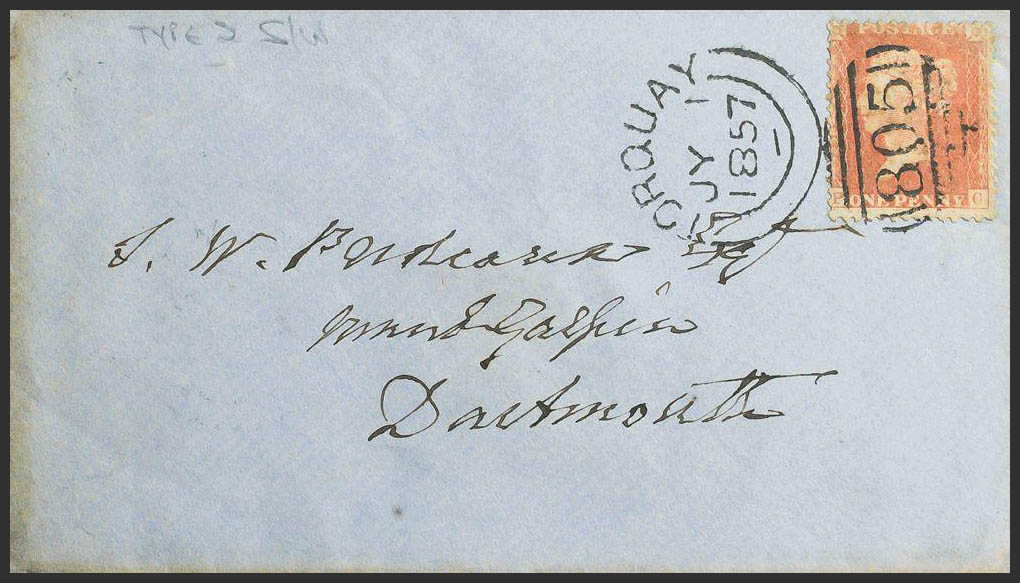 TYPE 2
POSTAGE
ORQUAY
JY 1
1857
805
ONE PENNY
J. W. Esq
Mount Galpin
Dartmouth